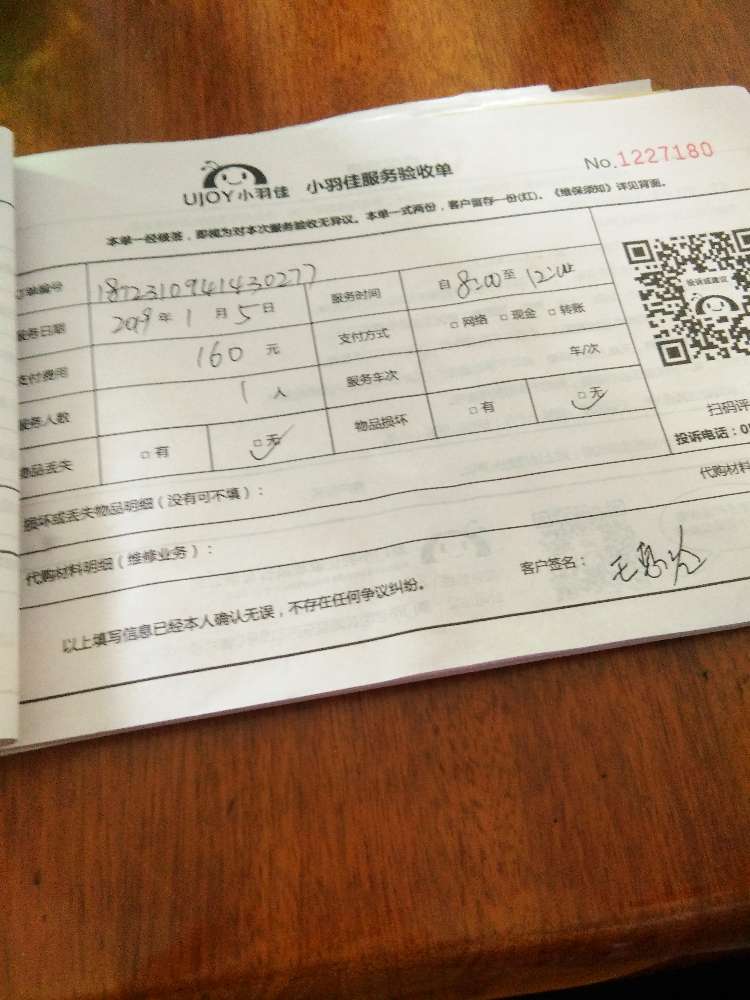 UJOY小羽佳 小羽佳服务验收单 No.1227180
本单一经核签，即视为对本次服务验收无异议。本单一式两份，客户留存一份(红)。《维保须知》详见背面。
订单编号 1872310941430277 服务时间 自 8:00 至 12:00
服务日期 2019 年 1 月 5 日 支付方式 □ 网络 □ 现金 □ 转账
支付费用 160 元 服务车次 车/次
服务人数 1 人 物品损坏 □ 有 □ 无
物品丢失 □ 有 □ 无
投诉或建议
扫码评
投诉电话：0
损坏或丢失物品明细（没有可不填）：
代购材料
代购材料明细（维修业务）：
以上填写信息已经本人确认无误，不存在任何争议纠纷。 客户签名：